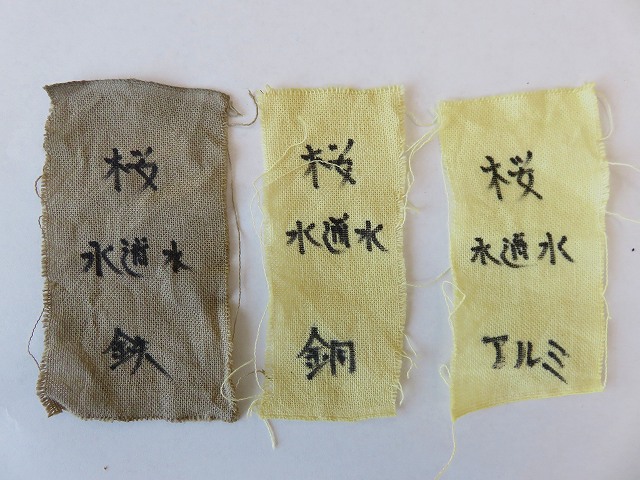 桜
水道水
鉄
桜
水道水
銅
桜
水道水
アルミ